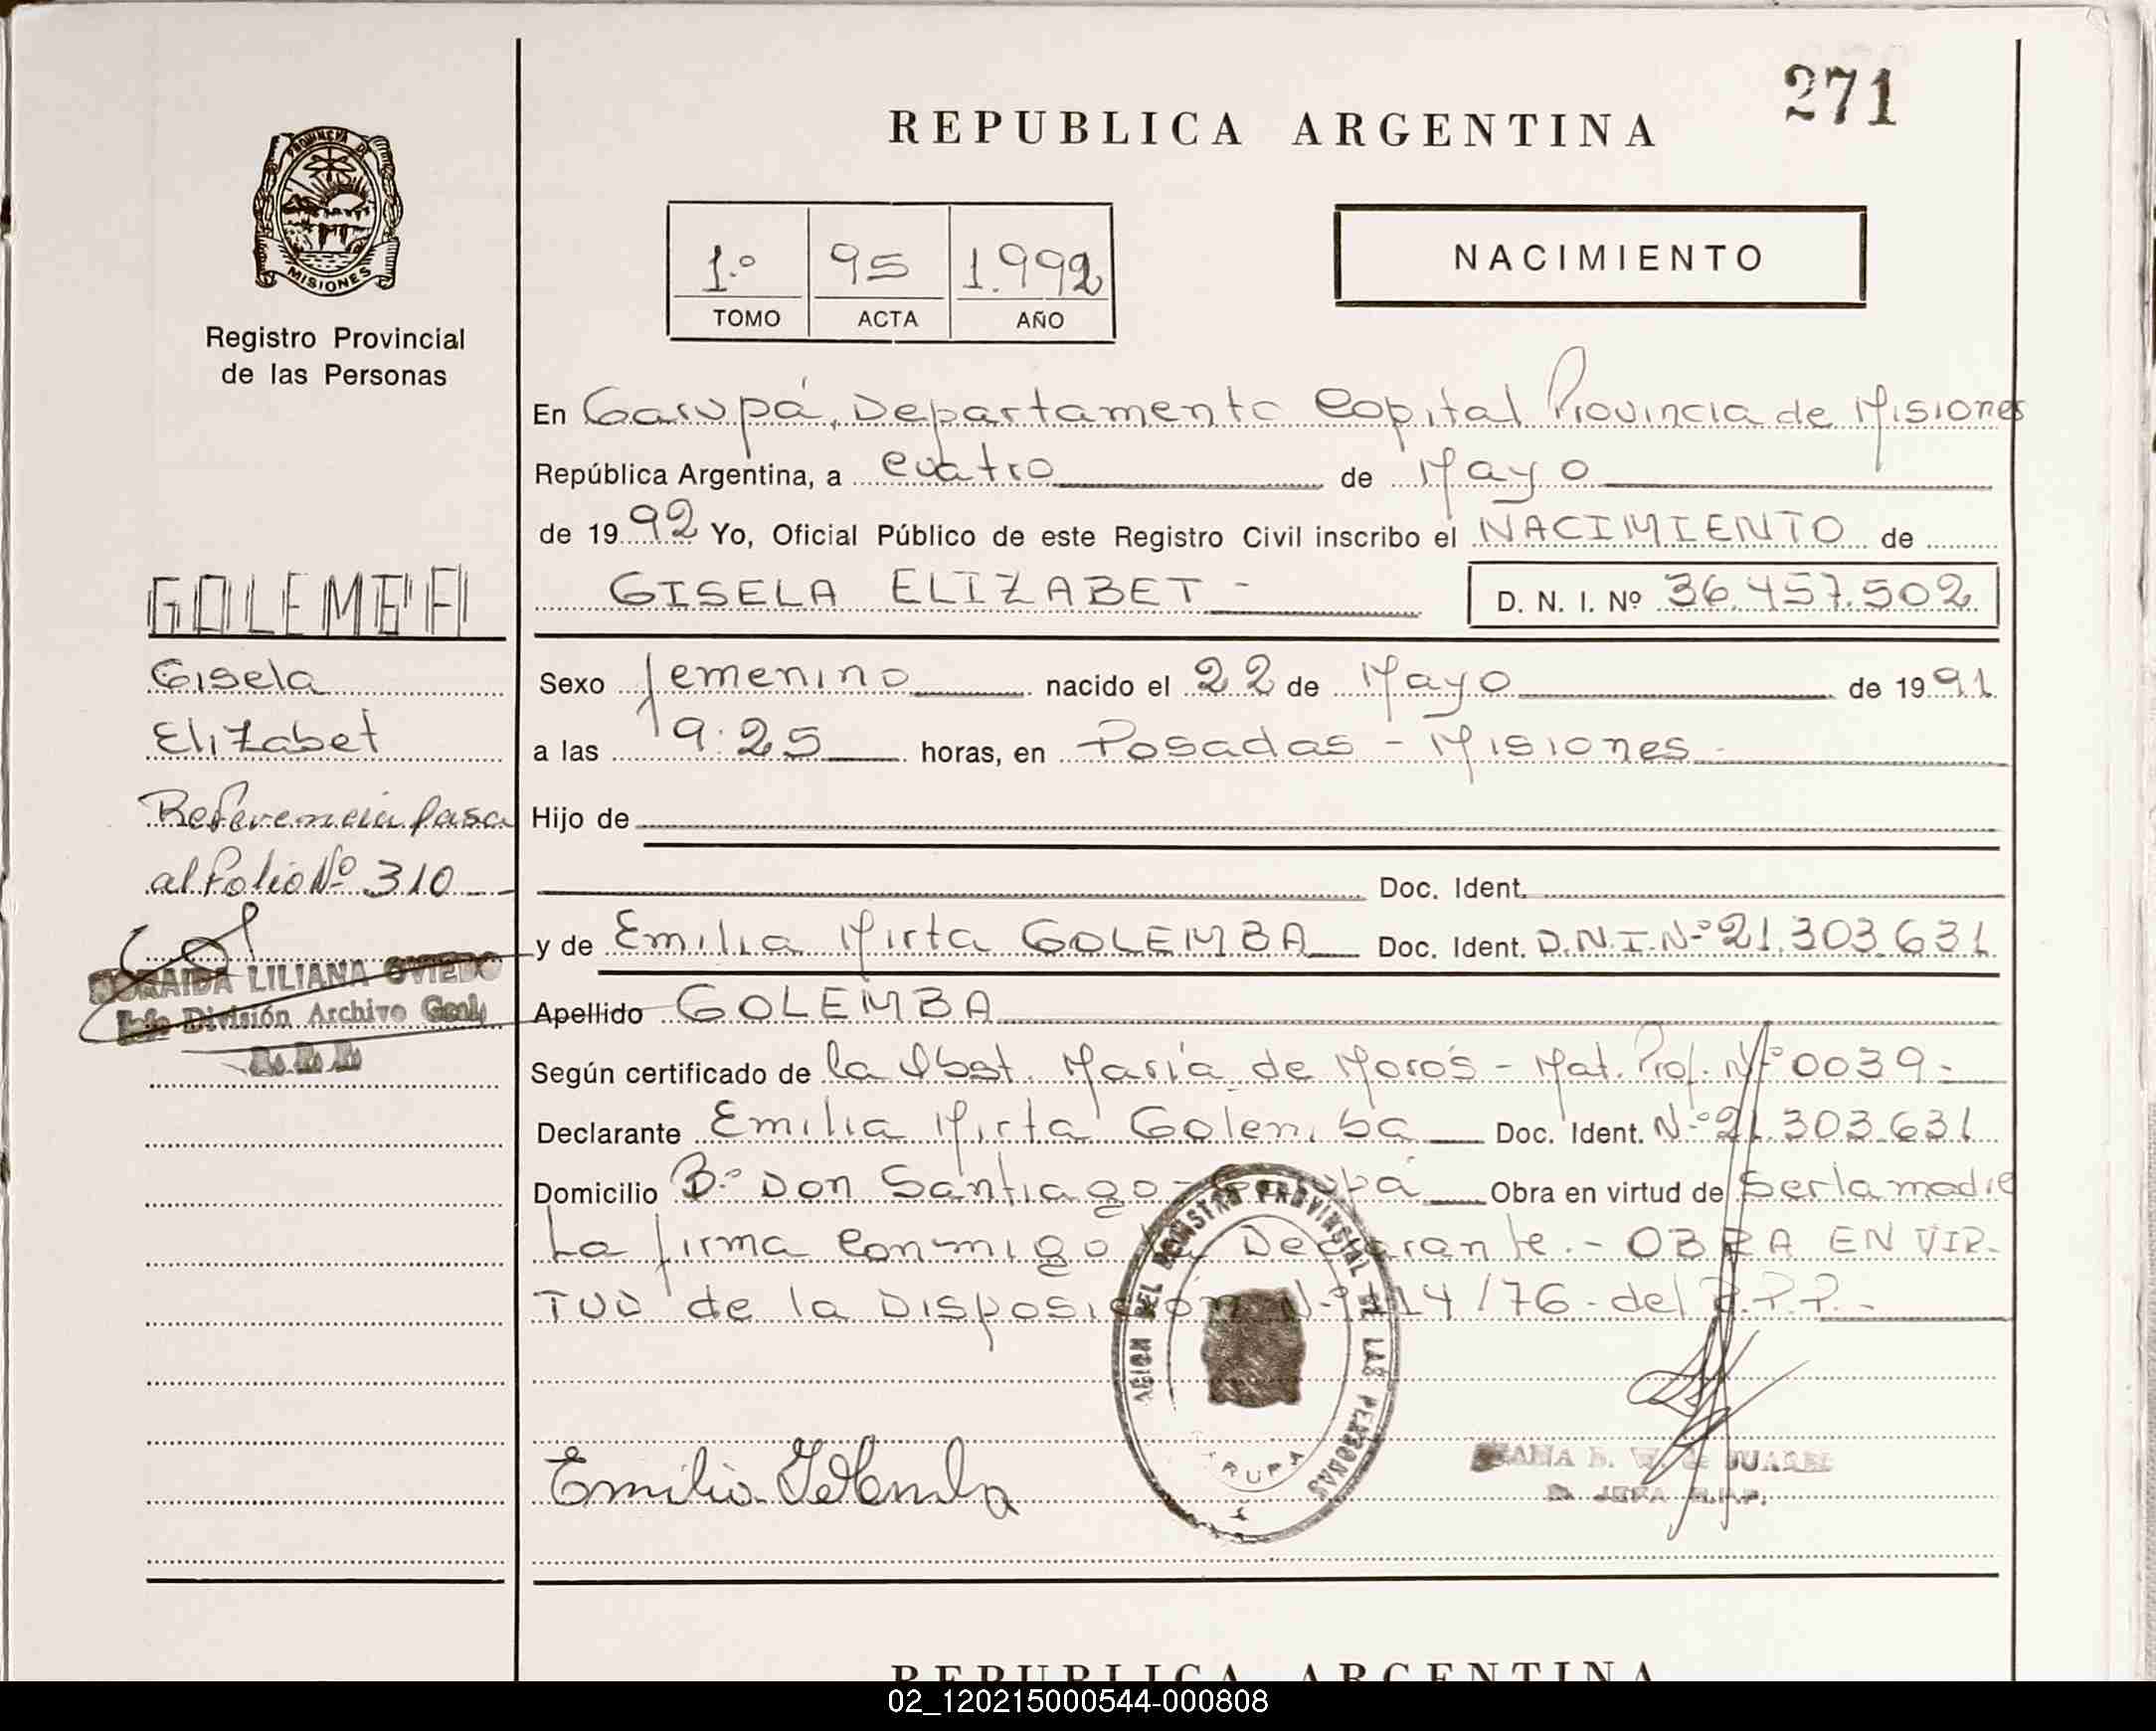 271
REPUBLICA ARGENTINA
PROVINCIA DE
MISIONES
Registro Provincial
de las Personas
1.º 95 1.992
TOMO ACTA AÑO
NACIMIENTO
En Garupá, Departamento Capital Provincia de Misiones
República Argentina, a cuatro de Mayo
de 1992 Yo, Oficial Público de este Registro Civil inscribo el NACIMIENTO de
GISELA ELIZABET - D. N. I. Nº 36.457.502
Sexo femenino nacido el 22 de Mayo de 1991
a las 19:25 horas, en Posadas - Misiones -
Hijo de
Doc. Ident.
y de Emilia Mirta GOLEMBA Doc. Ident. D.N.I.Nº 21.303.631
Apellido GOLEMBA
Según certificado de la Obst. María de Morós - Mat. Prof. Nº 0039-
Declarante Emilia Mirta Golemba Doc. Ident. Nº 21.303.631
Domicilio Bº Don Santiago - Garupá Obra en virtud de Ser la madre
La firma conmigo la Declarante.- OBRA EN VIR-
TUD de la Disposición Nº 114/76 - del R.P.P.-
GOLEMBA
Gisela
Elizabet
Referencia pasa
al Folio Nº 310
LILIANA OVIEDO
Jefe División Archivo Gral.
R.P.P.
DEL REGISTRO PROVINCIAL DE LAS PERSONAS
GARUPA
Emilia Golemba
JUAREZ
JEFA R.P.P.
REPUBLICA ARGENTINA
02_120215000544-000808